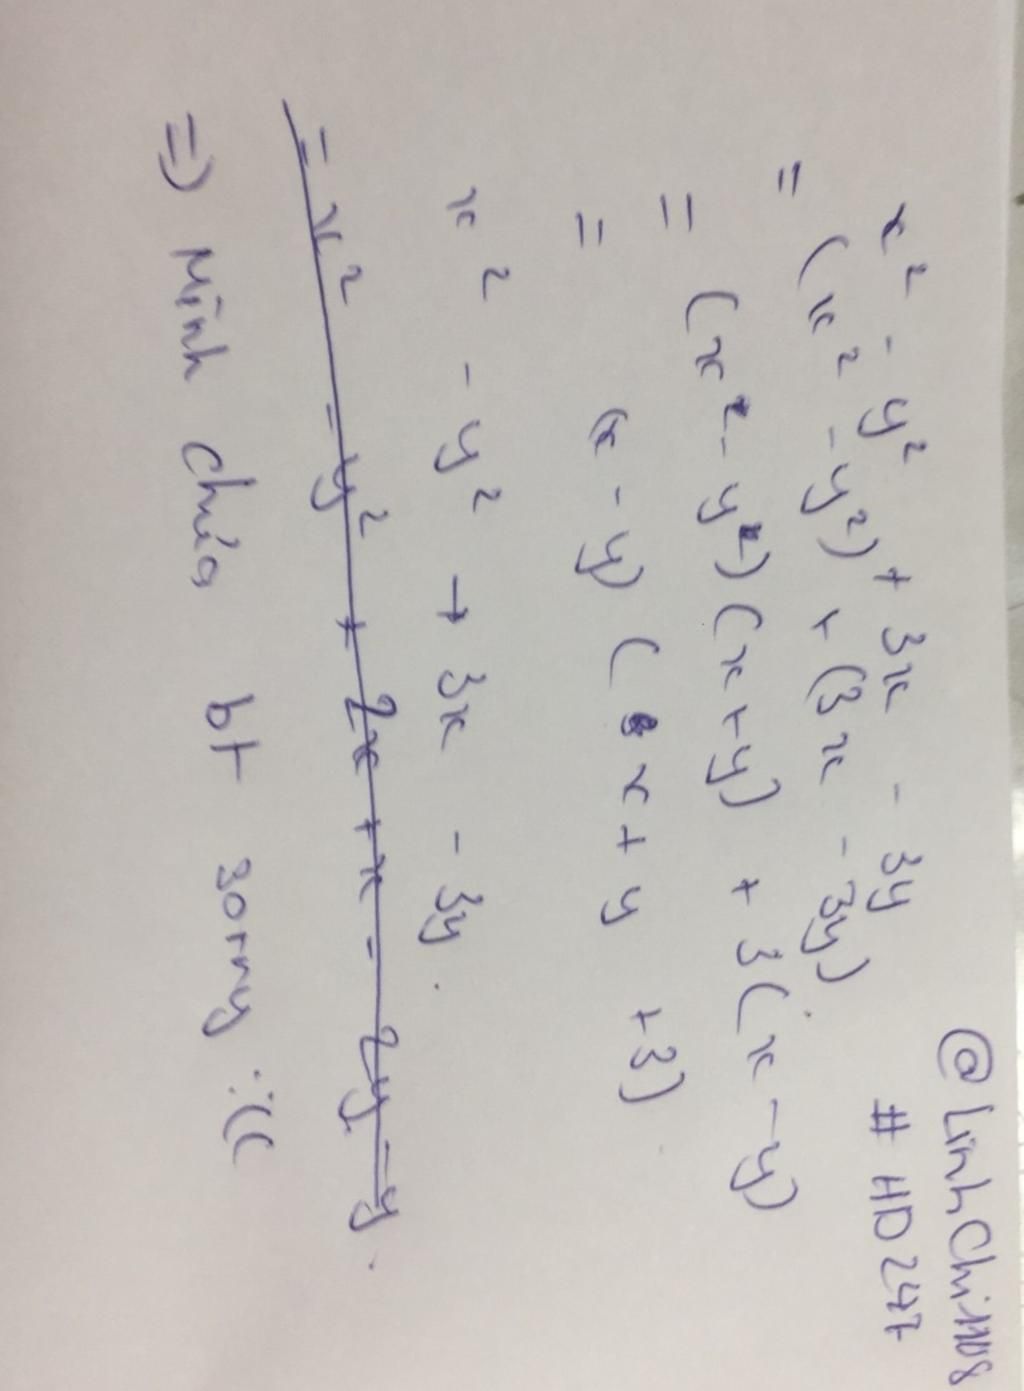 @LinhChi1108
# HD247
x² - y² + 3x - 3y
= (x² - y²) + (3x - 3y)
= (x - y)(x + y) + 3(x - y)
= (x - y)(x + y + 3)
x² - y² + 3x - 3y.
= x² - y² + 2x + x - 2y - y.
=) Mình chứa bt sorry :((